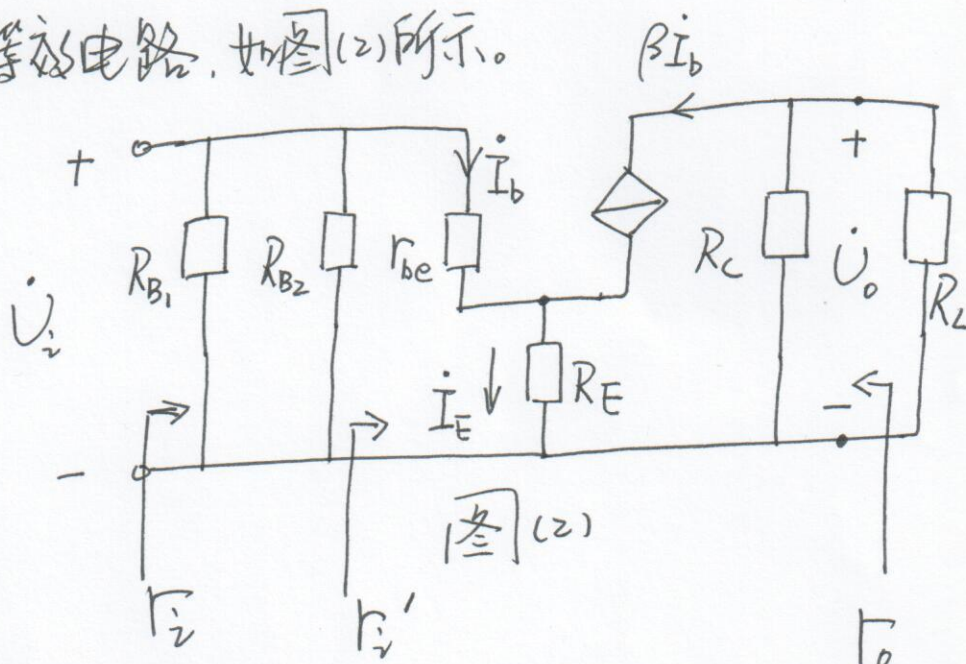 等效电路.如图(2)所示。
βİb
+
İb
+
RB1
RB2
rbe
RC
U̇o
RL
U̇i
İE
RE
-
-
图(2)
ri
ri'
ro